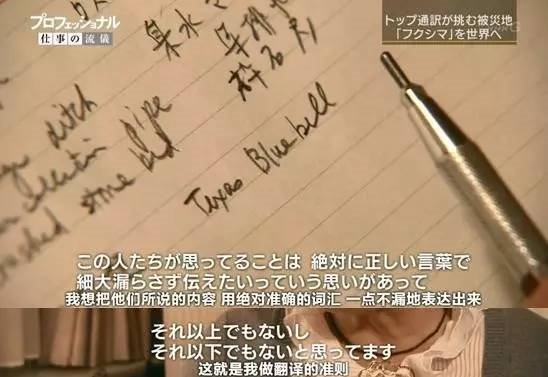 プロフェッショナル
仕事の流儀
トップ通訳が挑む被災地
「フクシマ」を世界へ
ditch
pipe
stone bed
Texas Bluebell
この人たちが思ってることは 絶対に正しい言葉で
細大漏らさず伝えたいっていう思いがあって
我想把他们所说的内容 用绝对准确的词汇 一点不漏地表达出来
それ以上でもないし
それ以下でもないと思ってます
这就是我做翻译的准则